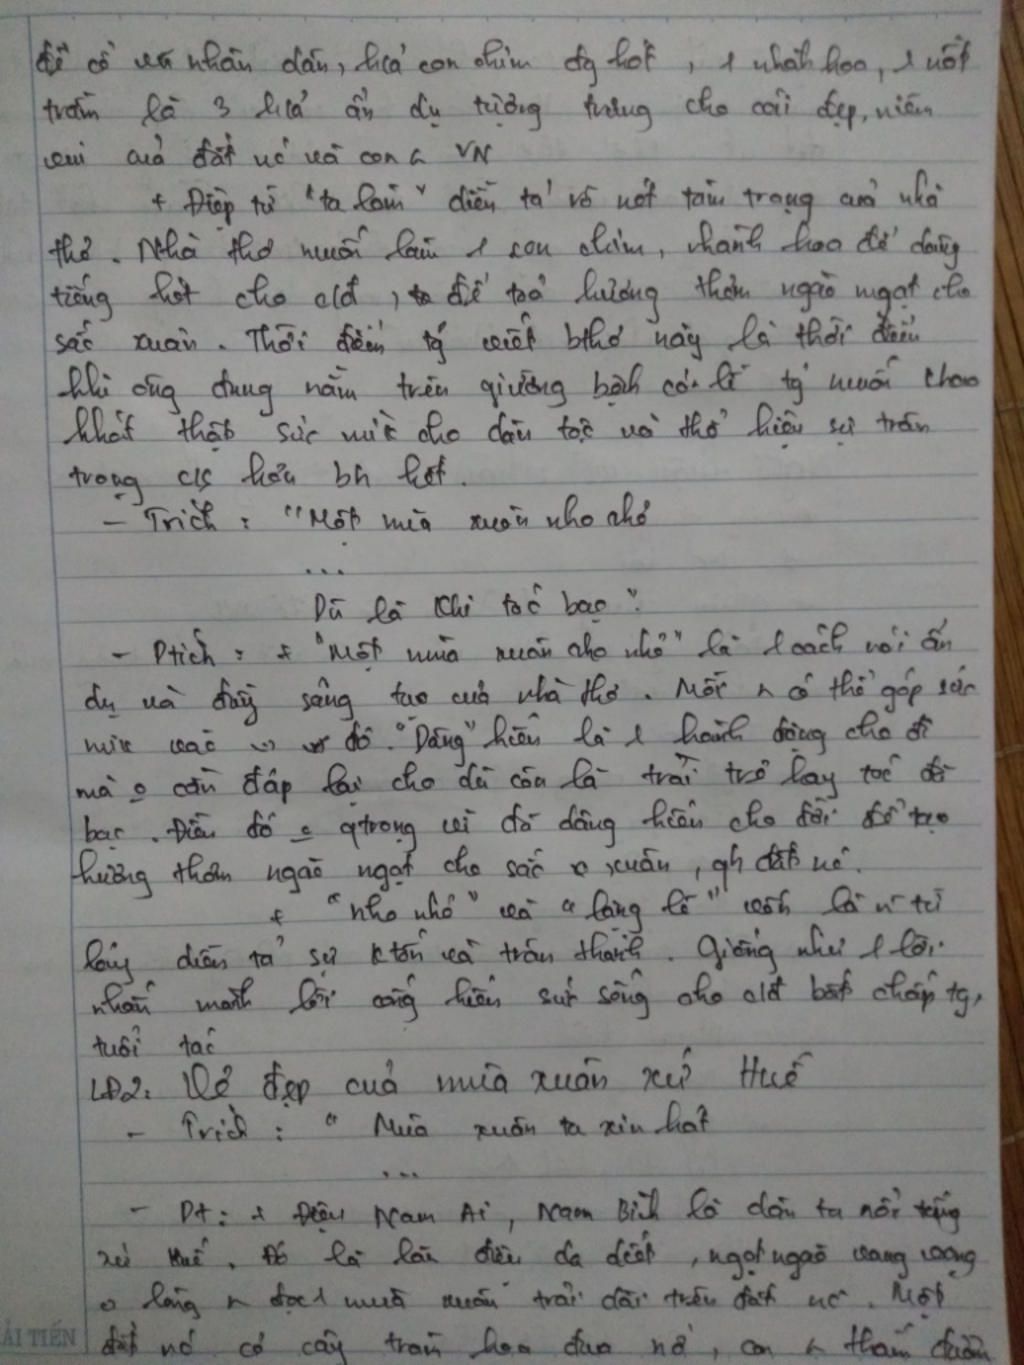 để cổ vũ nhân dân, h/ả con chim đg hót, 1 nhành hoa, 1 nốt
trầm là 3 h/ả ẩn dụ tượng trưng cho cái đẹp, niềm
vui của đất nc và con VN
+ Điệp từ "ta làm" diễn tả rõ nét tâm trạng của nhà
thơ. Nhà thơ muốn làm 1 con chim, nhành hoa để dâng
tiếng hót cho cđ, để toả hương thơm ngào ngạt cho
sắc xuân. Thời điểm tg viết bthơ này là thời điểm
khi ông đang nằm trên giường bệnh có lẽ tg muốn
khát thật sức mk cho dân tộc và thể hiện sự trân
trọng c/s hơn bh hết.
- Trích: "Một mùa xuân nho nhỏ
...
Dù là khi tóc bạc".
- Ptích: + "Một mùa xuân nho nhỏ" là 1 cách nói ẩn
dụ và đầy sáng tạo của nhà thơ. Mỗi có thể góp sức
mk vào đó. "Dâng" hiến là 1 hành động cho đi
mà cần đáp lại cho dù còn là trai trẻ hay tóc đã
bạc. Điều đó qtrọng vì đã dâng hiến cho đời để tạo
hương thơm ngào ngạt cho sắc xuân, qh đất nc.
+ "nho nhỏ" và "lặng lẽ" vốn là từ
láy diễn tả sự k tốn và trân thành. Giống như 1 lời
nhấn mạnh lời cống hiến sức sống cho cđ bất chấp tg,
tuổi tác
LĐ2: Vẻ đẹp của mùa xuân xứ Huế
- Trích: "Mùa xuân ta xin hát
...
- Pt: + Điệu Nam Ai, Nam Bình là dân ta nổi tiếng
xứ Huế. Đó là làn điệu da diết, ngọt ngào vang vọng
lòng đọc 1 mùa xuân trải dài trên đất nc. Một
đất nc có cây trăm hoa đua nở, con thắm
ẢI TIẾN